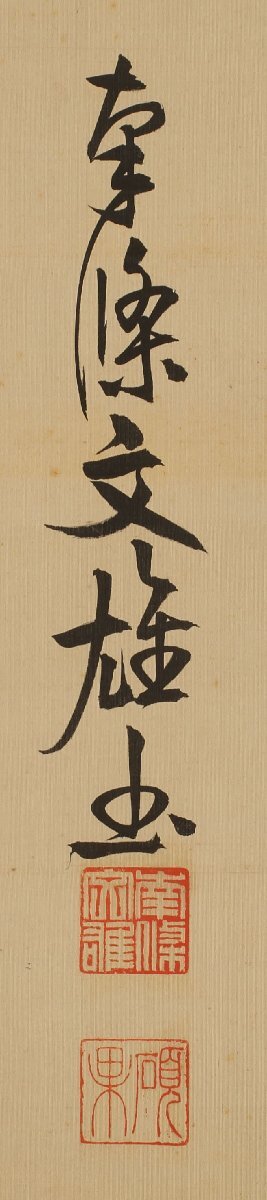 南條文雄書
南條文雄
碩果